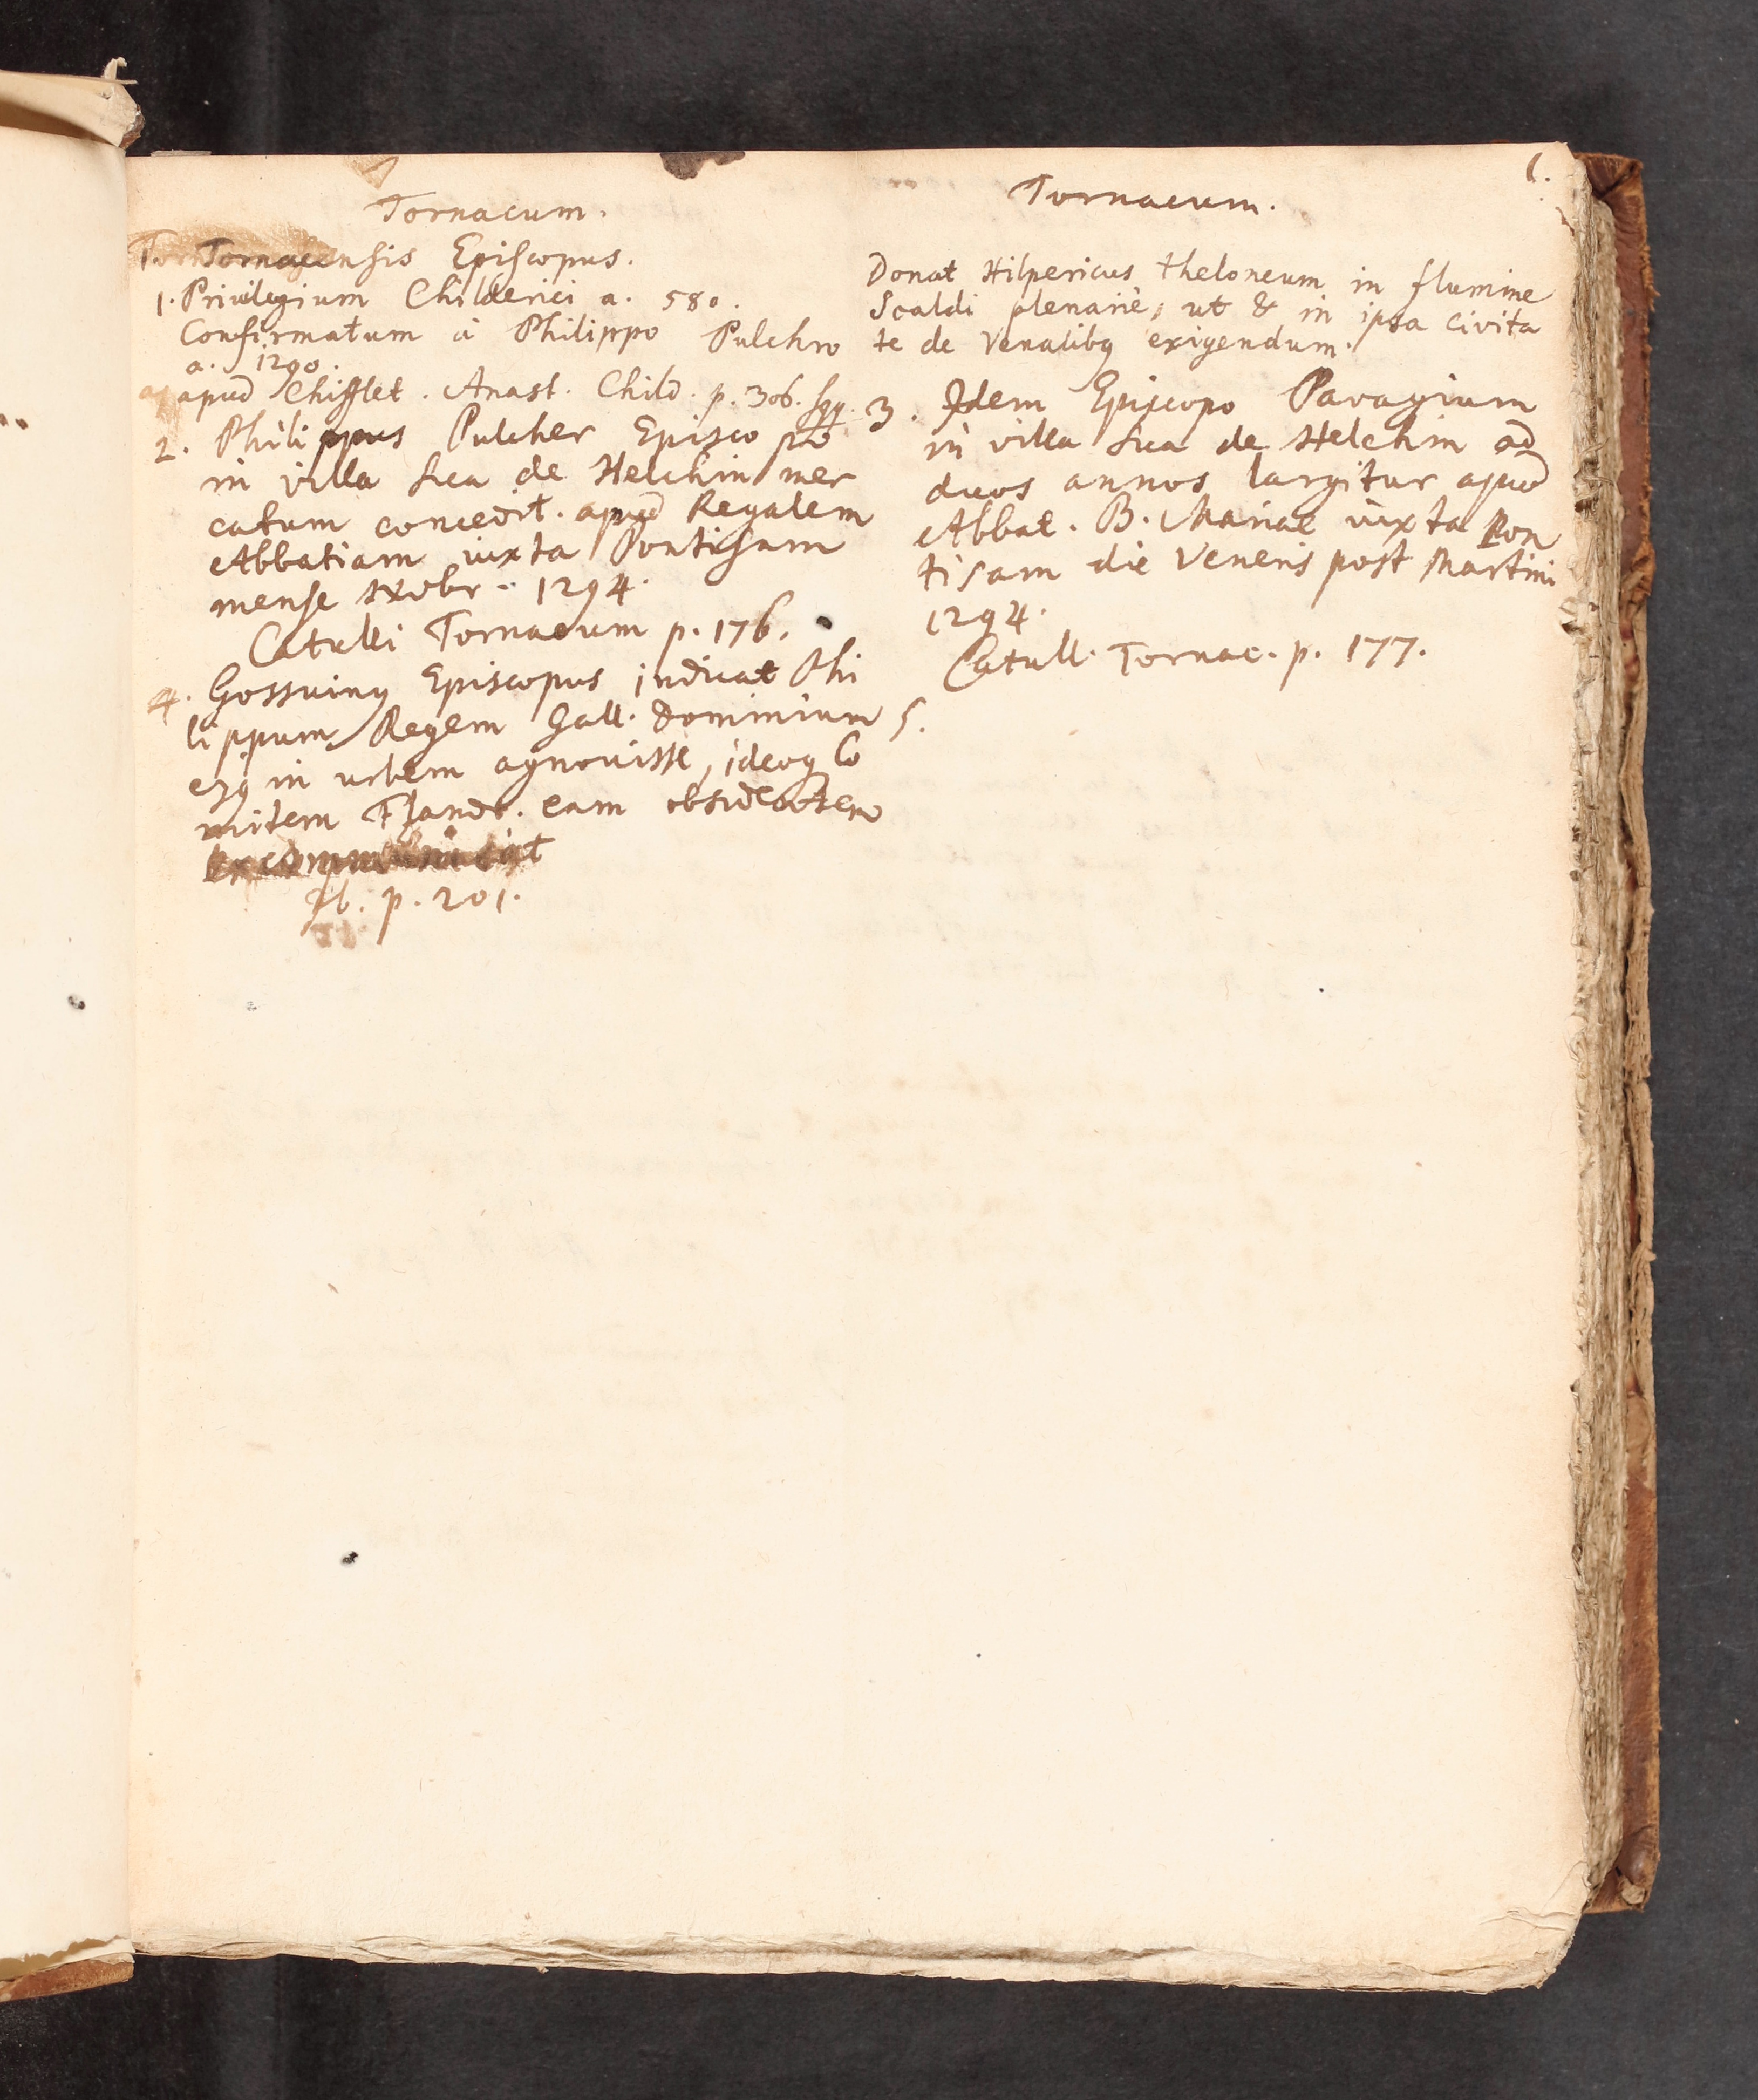 1.
Tornacum.
Tornacensis Episcopus.
1. Privilegium Childerici a. 580.
Confirmatum à Philippo Pulchro
a. 1290.
apud Chifflet. Anast. Child. p. 306. sqq.
2. Philippus Pulcher Episcopo
in villa sua de Helchin mer
catum concedit. apud Regalem
Abbatiam iuxta Pontisam
mense 1294.
Catulli Tornacum p. 176.
4. Gossuinq Episcopus indicat Phi
lippum Regem Gall. Dominium
ejq in urbem agnovisse, ideoq Co
mitem Flandr. eam obsidentem
excommunicat
Ib. p. 201.
Tornacum.
Donat Hilpericus theloneum in flumine
Scaldi plenariè, ut & in ipsa civita
te de venalibq exigendum.
3. Idem Episcopo Pavagium
in villa sua de Helchin ad
duos annos largitur apud
Abbat. B. Mariae iuxta Pon
tisam die Veneris post Martini
1294.
Catull. Tornac. p. 177.
5.